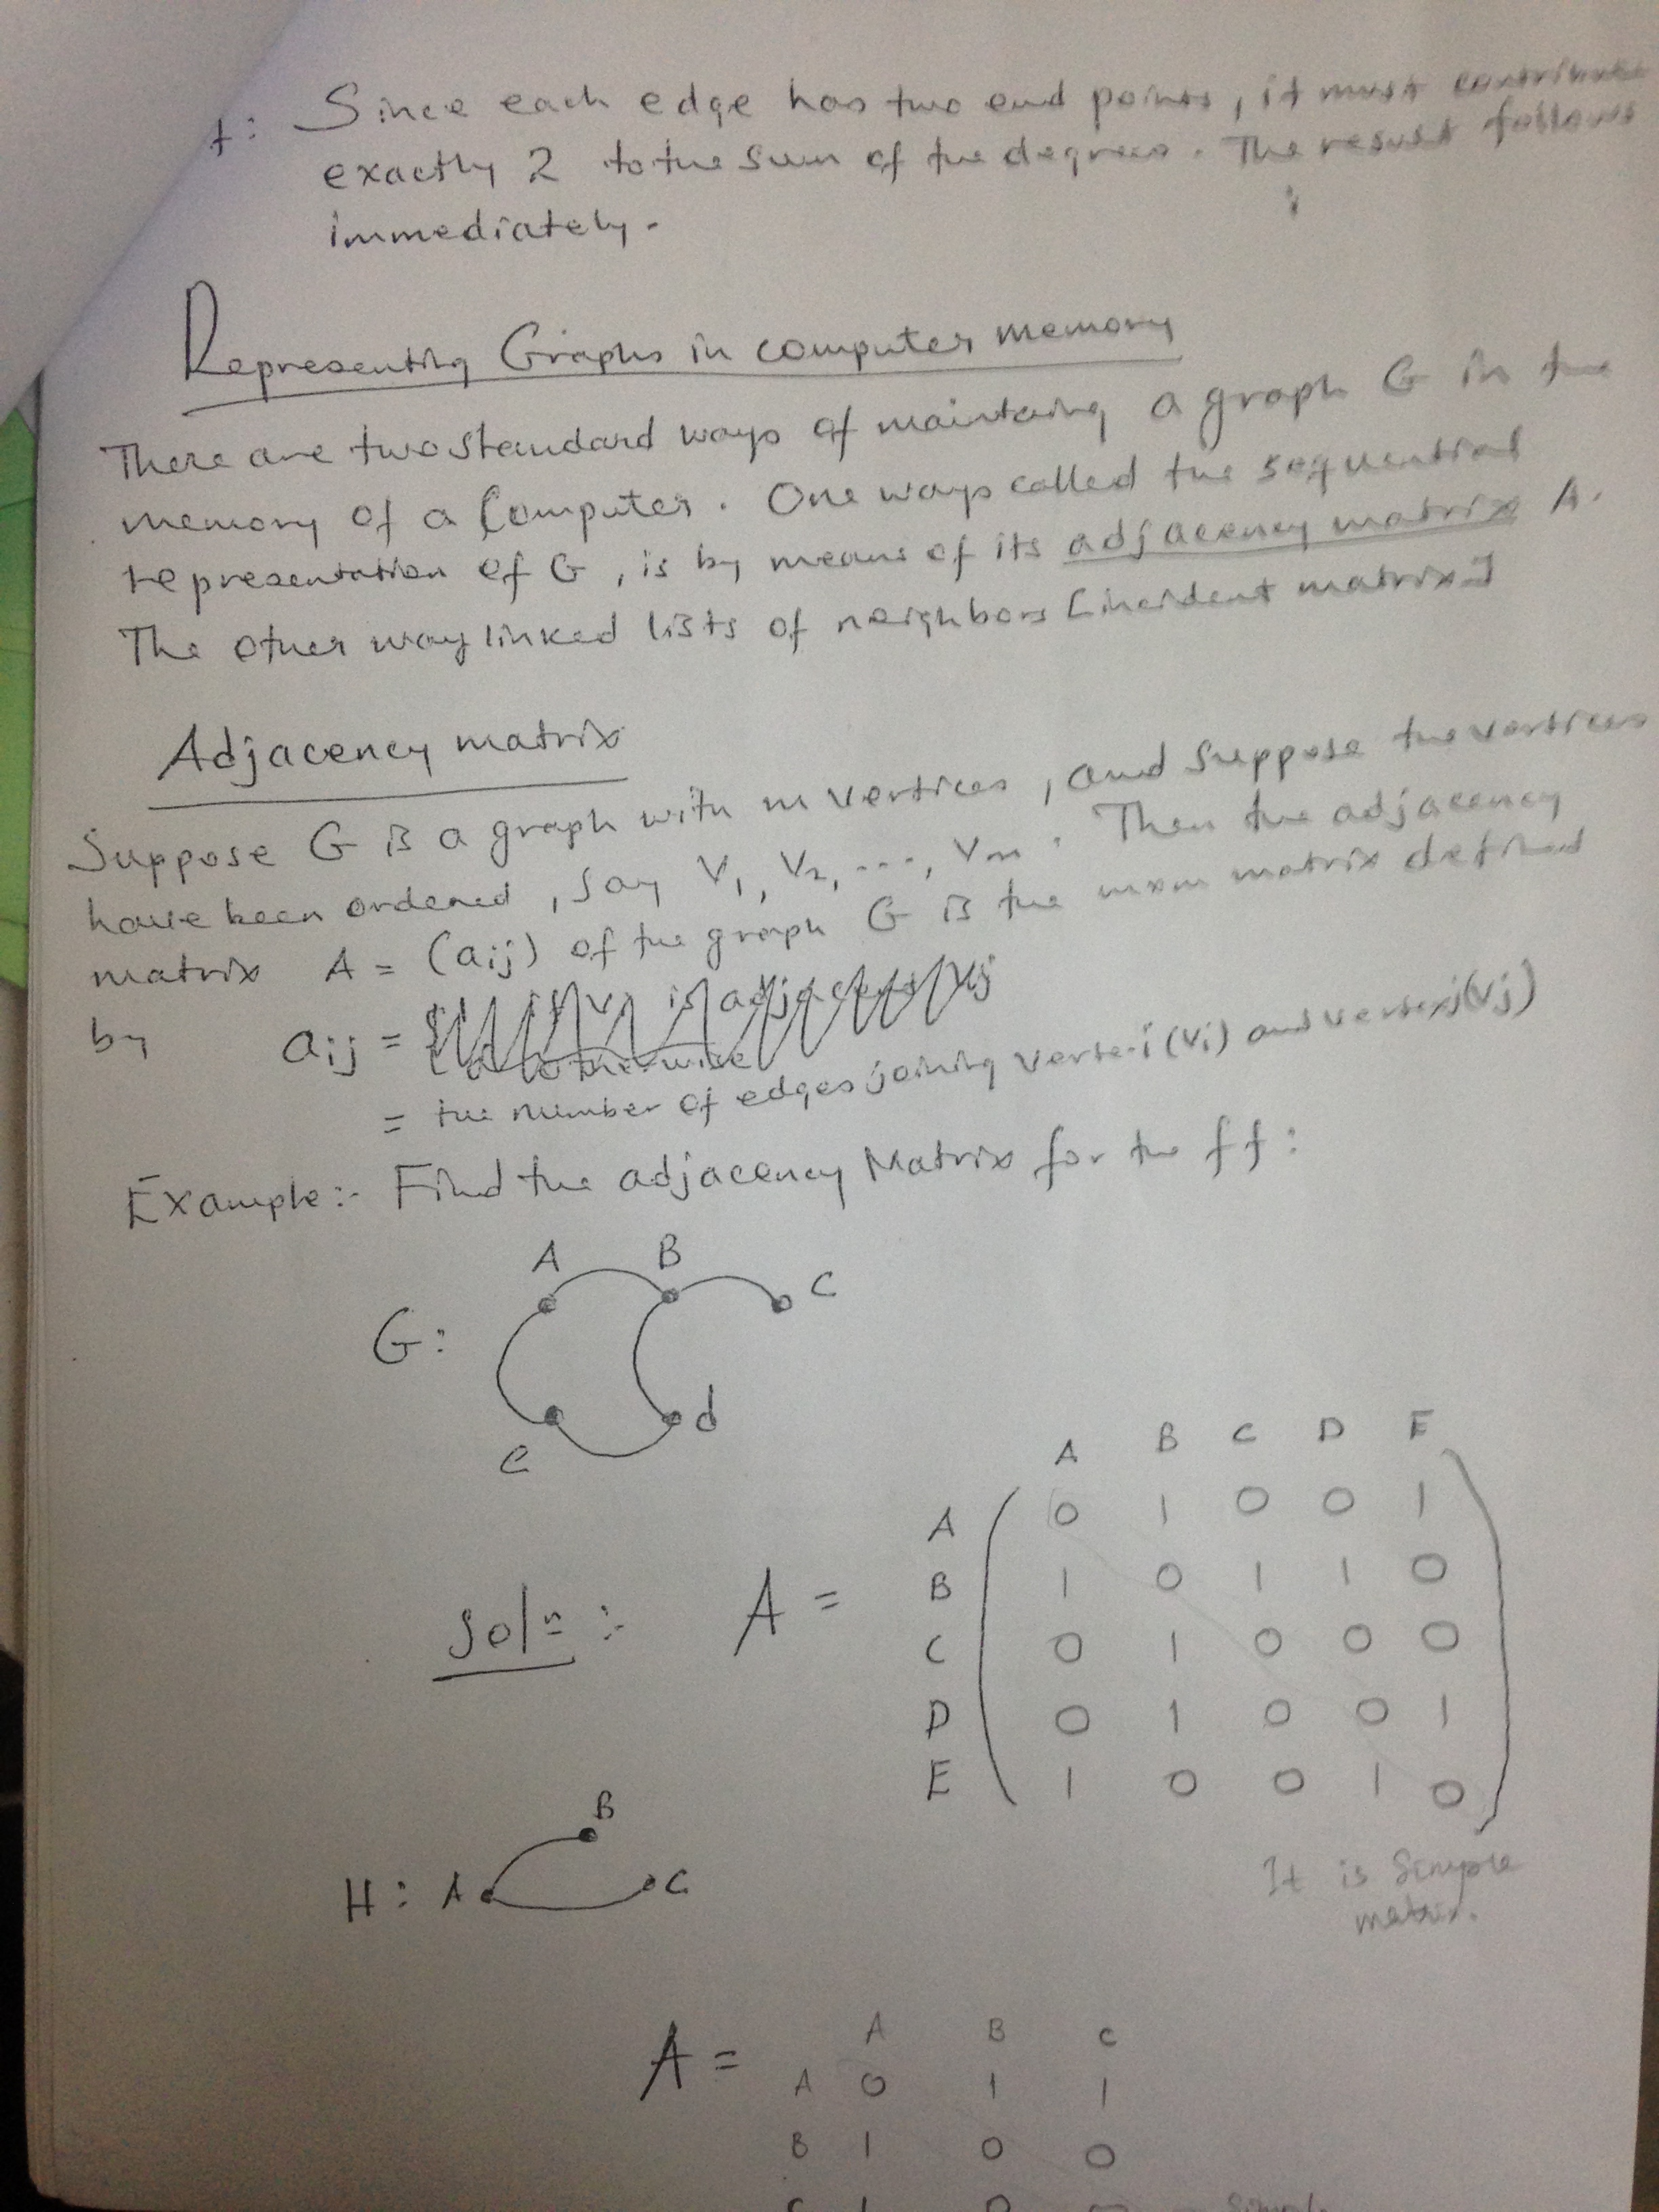 f: Since each edge has two end points, it must contribute
exactly 2 to the sum of the degrees. The result follows
immediately.
Representing Graphs in computer memory
There are two standard ways of maintaing a graph G in the
memory of a Computer. One ways called the sequential
representation of G, is by means of its adjacency matrix A.
The other way linked lists of neighbors [incident matrix]
Adjacency matrix
Suppose G is a graph with m vertices, and suppose the vertices
have been ordered, say V1, V2, ..., Vm. Then the adjacency
matrix A = (aij) of the graph G is the mxm matrix defined
by aij =
= the number of edges joining vertex-i (Vi) and vertexj(Vj)
Example:- Find the adjacency Matrix for the ff:
A B C
G:
e d
A B C D E
A 0 1 0 0 1
B 1 0 1 1 0
Soln :- A =
C 0 1 0 0 0
D 0 1 0 0 1
E 1 0 0 1 0
B
H: A C
It is Simple
matrix.
A B C
A = A 0 1 1
B 1 0 0
C 1 0
Simple